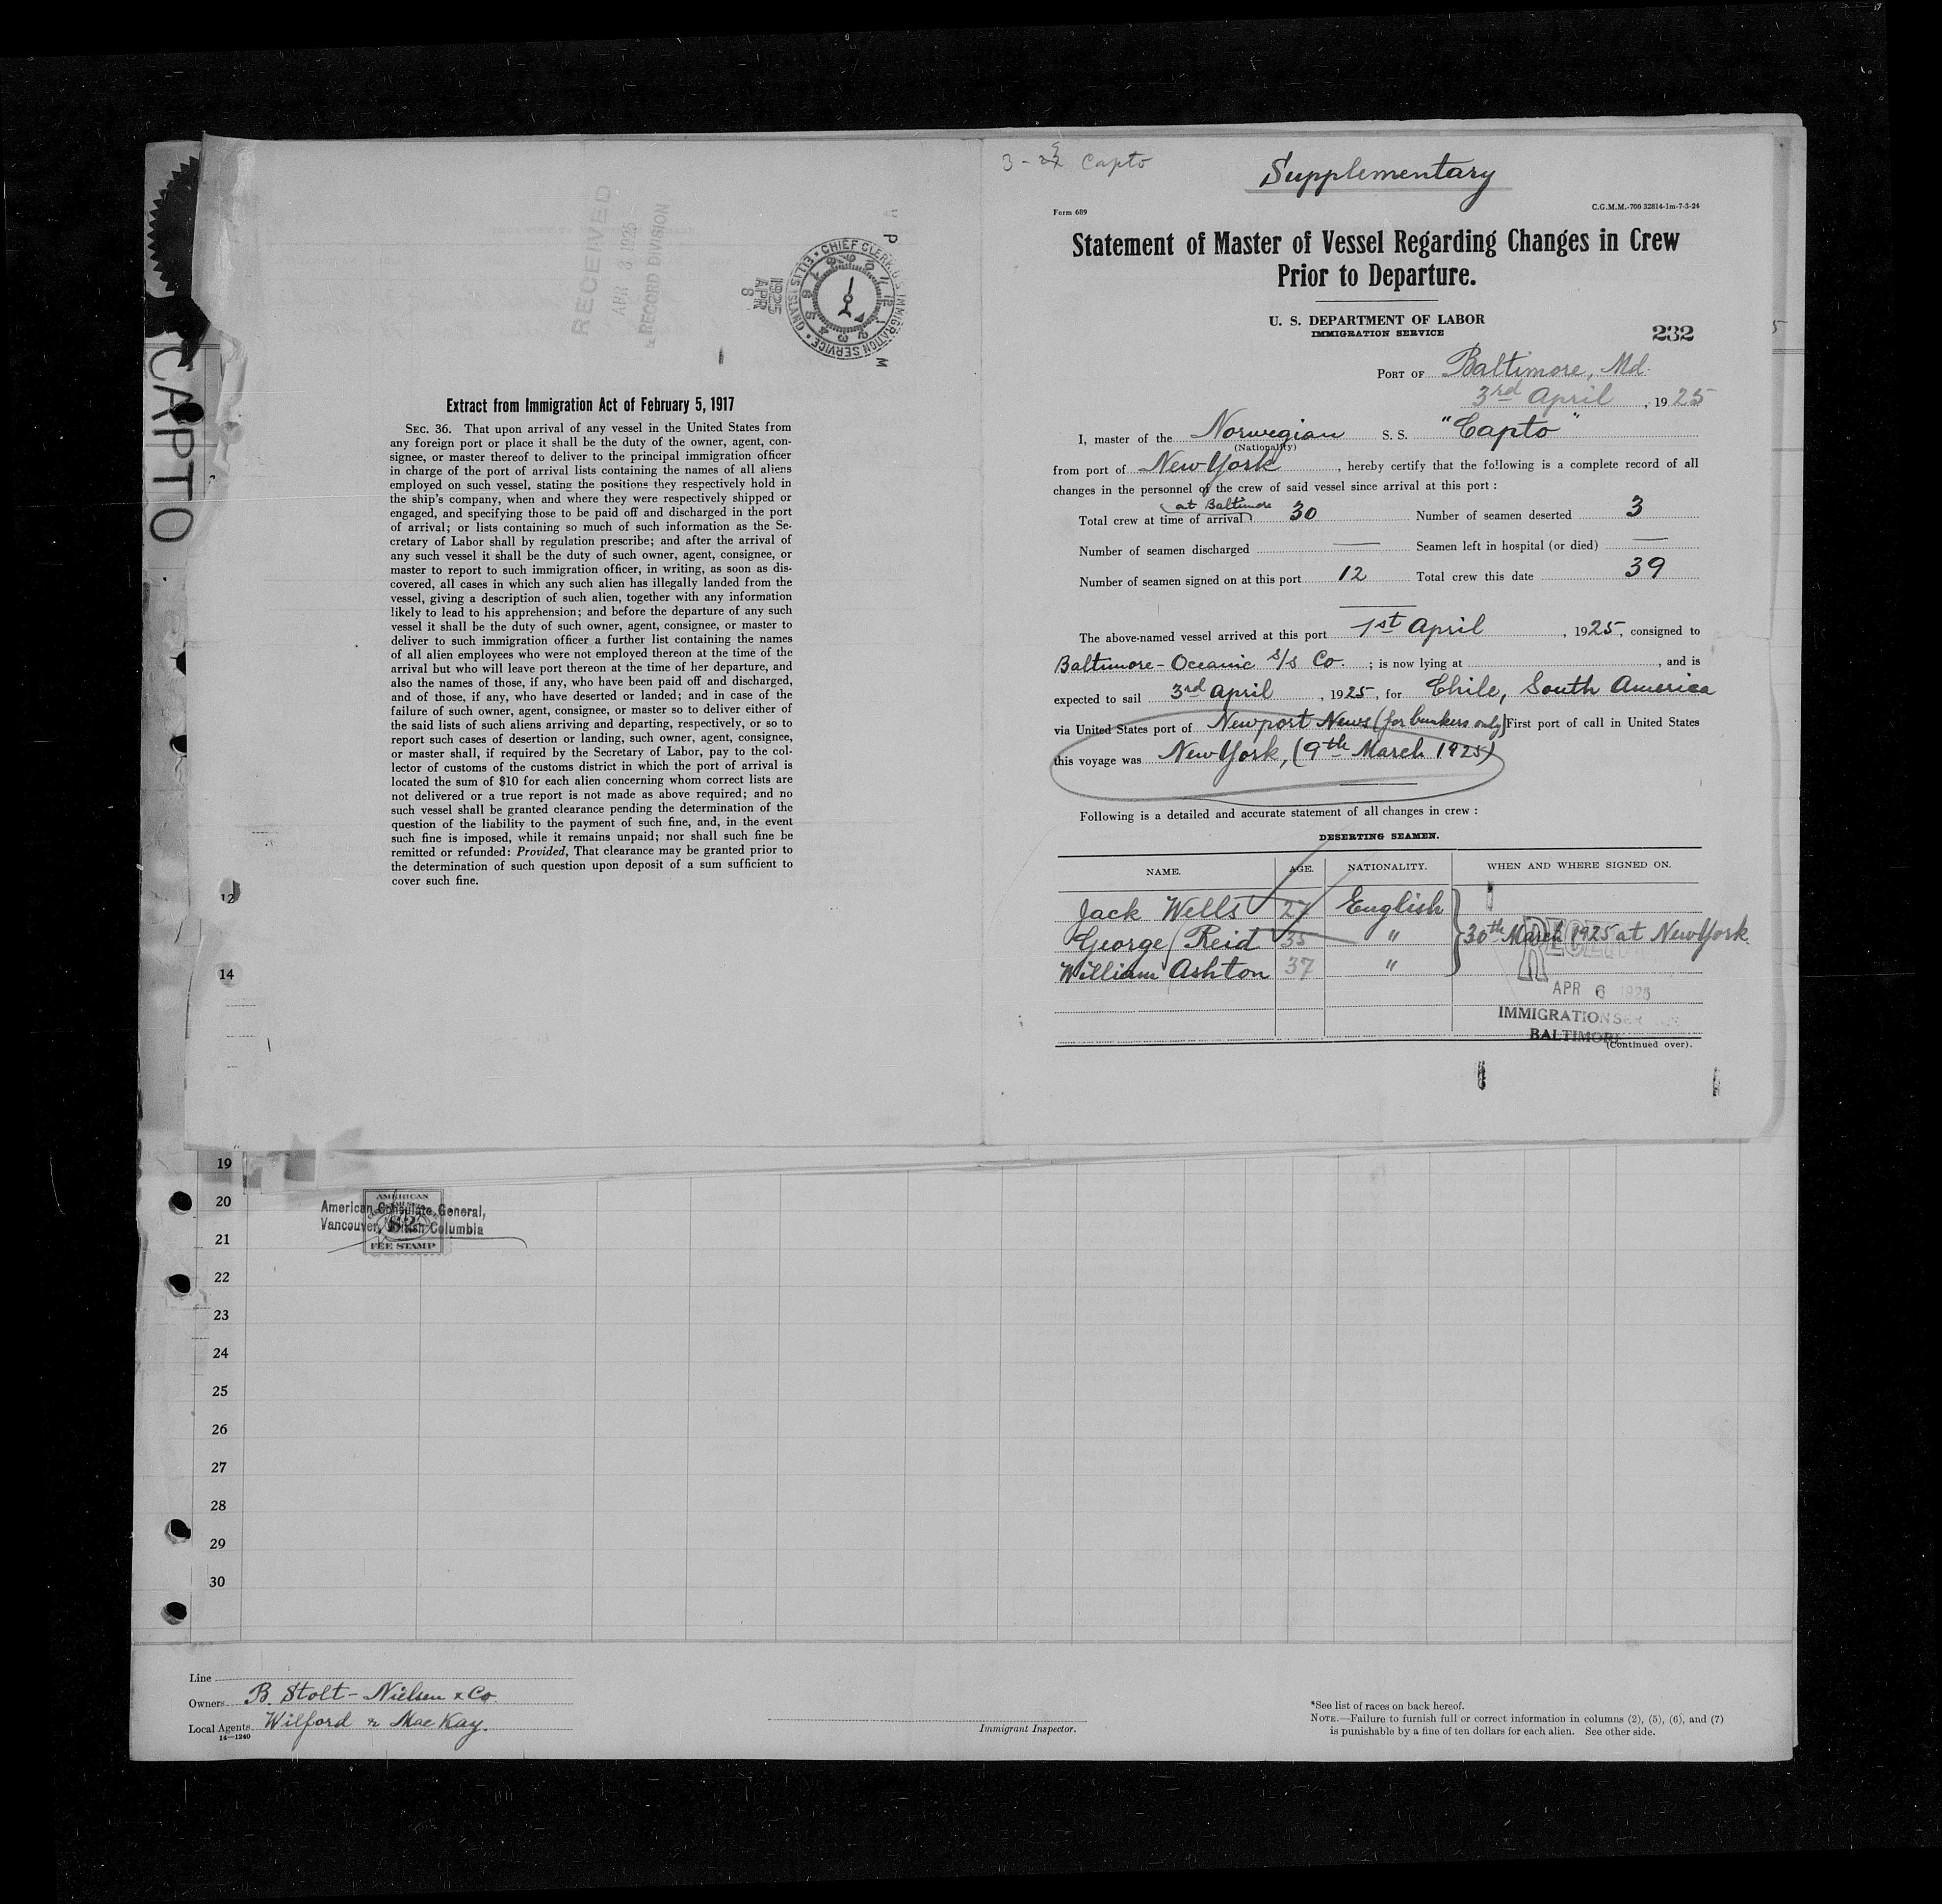 CAPTO
RECEIVED
APR 8 1925
RECORD DIVISION
CHIEF CLERK, U.S. IMMIGRATION SERVICE • ELLIS ISLAND •
1925
APR
8
P M
Extract from Immigration Act of February 5, 1917
SEC. 36. That upon arrival of any vessel in the United States from
any foreign port or place it shall be the duty of the owner, agent, con-
signee, or master thereof to deliver to the principal immigration officer
in charge of the port of arrival lists containing the names of all aliens
employed on such vessel, stating the positions they respectively hold in
the ship's company, when and where they were respectively shipped or
engaged, and specifying those to be paid off and discharged in the port
of arrival; or lists containing so much of such information as the Se-
cretary of Labor shall by regulation prescribe; and after the arrival of
any such vessel it shall be the duty of such owner, agent, consignee, or
master to report to such immigration officer, in writing, as soon as dis-
covered, all cases in which any such alien has illegally landed from the
vessel, giving a description of such alien, together with any information
likely to lead to his apprehension; and before the departure of any such
vessel it shall be the duty of such owner, agent, consignee, or master to
deliver to such immigration officer a further list containing the names
of all alien employees who were not employed thereon at the time of the
arrival but who will leave port thereon at the time of her departure, and
also the names of those, if any, who have been paid off and discharged,
and of those, if any, who have deserted or landed; and in case of the
failure of such owner, agent, consignee, or master so to deliver either of
the said lists of such aliens arriving and departing, respectively, or so to
report such cases of desertion or landing, such owner, agent, consignee,
or master shall, if required by the Secretary of Labor, pay to the col-
lector of customs of the customs district in which the port of arrival is
located the sum of $10 for each alien concerning whom correct lists are
not delivered or a true report is not made as above required; and no
such vessel shall be granted clearance pending the determination of the
question of the liability to the payment of such fine, and, in the event
such fine is imposed, while it remains unpaid; nor shall such fine be
remitted or refunded: Provided, That clearance may be granted prior to
the determination of such question upon deposit of a sum sufficient to
cover such fine.
12
14
3 - Capto
Supplementary
Form 689
C.G.M.M.-700 32814-1m-7-3-24
Statement of Master of Vessel Regarding Changes in Crew
Prior to Departure.
U. S. DEPARTMENT OF LABOR
IMMIGRATION SERVICE
232
PORT OF Baltimore, Md.
3rd April, 1925
I, master of the Norwegian S. S. "Capto"
(Nationality)
from port of New York, hereby certify that the following is a complete record of all
changes in the personnel of the crew of said vessel since arrival at this port :
at Baltimore
Total crew at time of arrival 30 Number of seamen deserted 3
Number of seamen discharged — Seamen left in hospital (or died) —
Number of seamen signed on at this port 12 Total crew this date 39
The above-named vessel arrived at this port 1st April, 1925, consigned to
Baltimore-Oceanic S/S Co. ; is now lying at , and is
expected to sail 3rd April, 1925, for Chile, South America
via United States port of Newport News (for bunkers only) First port of call in United States
this voyage was New York, (9th March 1925)
Following is a detailed and accurate statement of all changes in crew :
DESERTING SEAMEN.
NAME. AGE. NATIONALITY. WHEN AND WHERE SIGNED ON.
Jack Wells 27 English
George Reid 35 " 30th March 1925 at New York
William Ashton 37 "
RECEIVED
APR 6 1925
IMMIGRATION SERVICE
BALTIMORE
(Continued over).
19
20
21
22
23
24
25
26
27
28
29
30
American Consulate General,
Vancouver, British Columbia
AMERICAN
$2
FEE STAMP
Line
Owners B. Stolt-Nielsen & Co.
Local Agents Wilford & MacKay.
14—1240
Immigrant Inspector.
*See list of races on back hereof.
NOTE.—Failure to furnish full or correct information in columns (2), (5), (6), and (7)
is punishable by a fine of ten dollars for each alien. See other side.